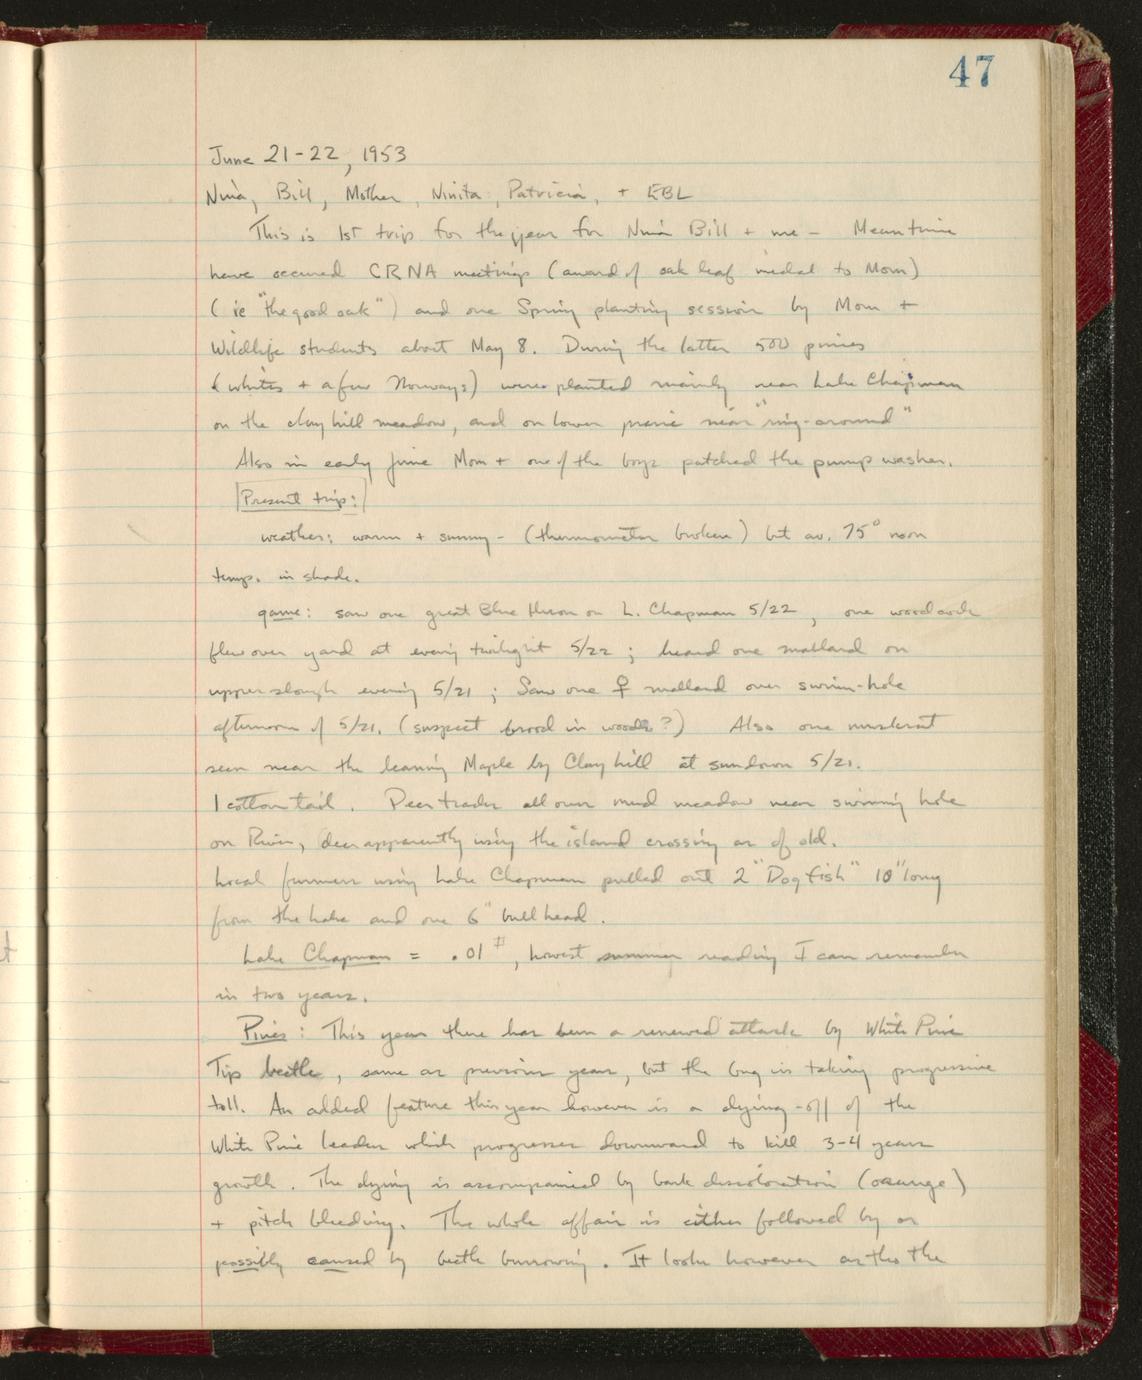 47
June 21-22, 1953
Nina, Bill, Mother, Ninita, Patricia, + EBL
This is 1st trip for the year for Nina Bill + me - Meantime
have occured CRNA meetings (award of oak leaf medal to Mom)
(ie "the good oak") and one Spring planting session by Mom +
Wildlife students about May 8. During the latter 500 pines
(whites + a few Norways) were planted mainly near Lake Chapman
on the clay hill meadow, and on lower prairie near "ring-around"
Also in early June Mom + one of the boys patched the pump washer.
Present trip:
weather: warm + sunny - (thermometer broken) but av. 75° noon
temp. in shade.
game: saw one great Blue Heron on L. Chapman 5/22, one woodcock
flew over yard at evening twilight 5/22; heard one mallard on
upper slough evening 5/21; Saw one ♀ mallard over swim-hole
afternoon of 5/21. (suspect brood in woods?) Also one muskrat
seen near the leaning Maple by Clay hill at sundown 5/21.
1 cottontail. Deer tracks all over mud meadow near swimming hole
on River, deer apparently using the island crossing as of old.
Local farmers using Lake Chapman pulled out 2 "Dog fish" 10" long
from the Lake and one 6" bullhead.
Lake Chapman = .01 , lowest summer reading I can remember
in two years.
Pines: This year there has been a renewed attack by White Pine
Tip beetle, same as previous years, but the bug is taking progressive
toll. An added feature this year however is a dying-off of the
White Pine leader which progresses downward to kill 3-4 years
growth. The dying is accompanied by bark discoloration (orange)
+ pitch bleeding. The whole affair is either followed by or
possibly caused by beetle burrowing. It looks however as tho the
t